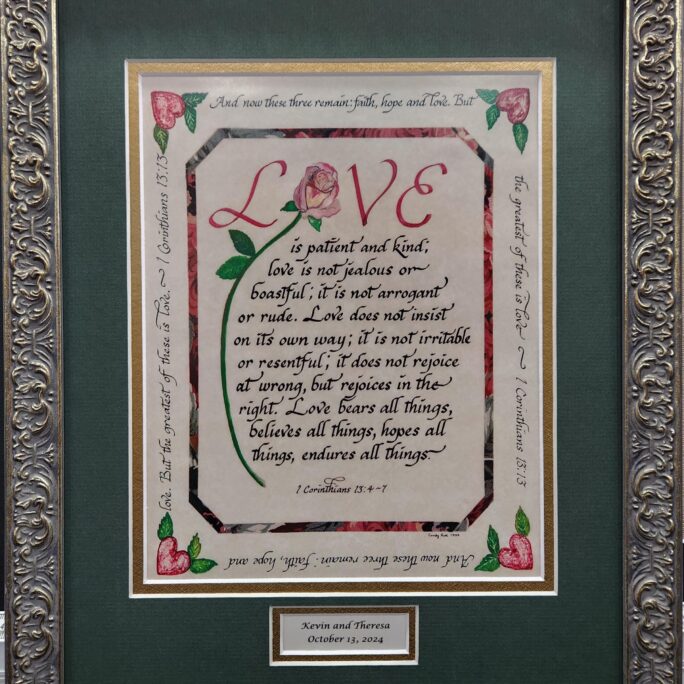 And now these three remain: faith, hope and love. But
the greatest of these is love ~ 1 Corinthians 13:13
And now these three remain: faith, hope and
love. But the greatest of these is love. ~ 1 Corinthians 13:13
LOVE
is patient and kind;
love is not jealous or
boastful; it is not arrogant
or rude. Love does not insist
on its own way; it is not irritable
or resentful; it does not rejoice
at wrong, but rejoices in the
right. Love bears all things,
believes all things, hopes all
things, endures all things.
1 Corinthians 13:4-7
Kevin and Theresa
October 13, 2024